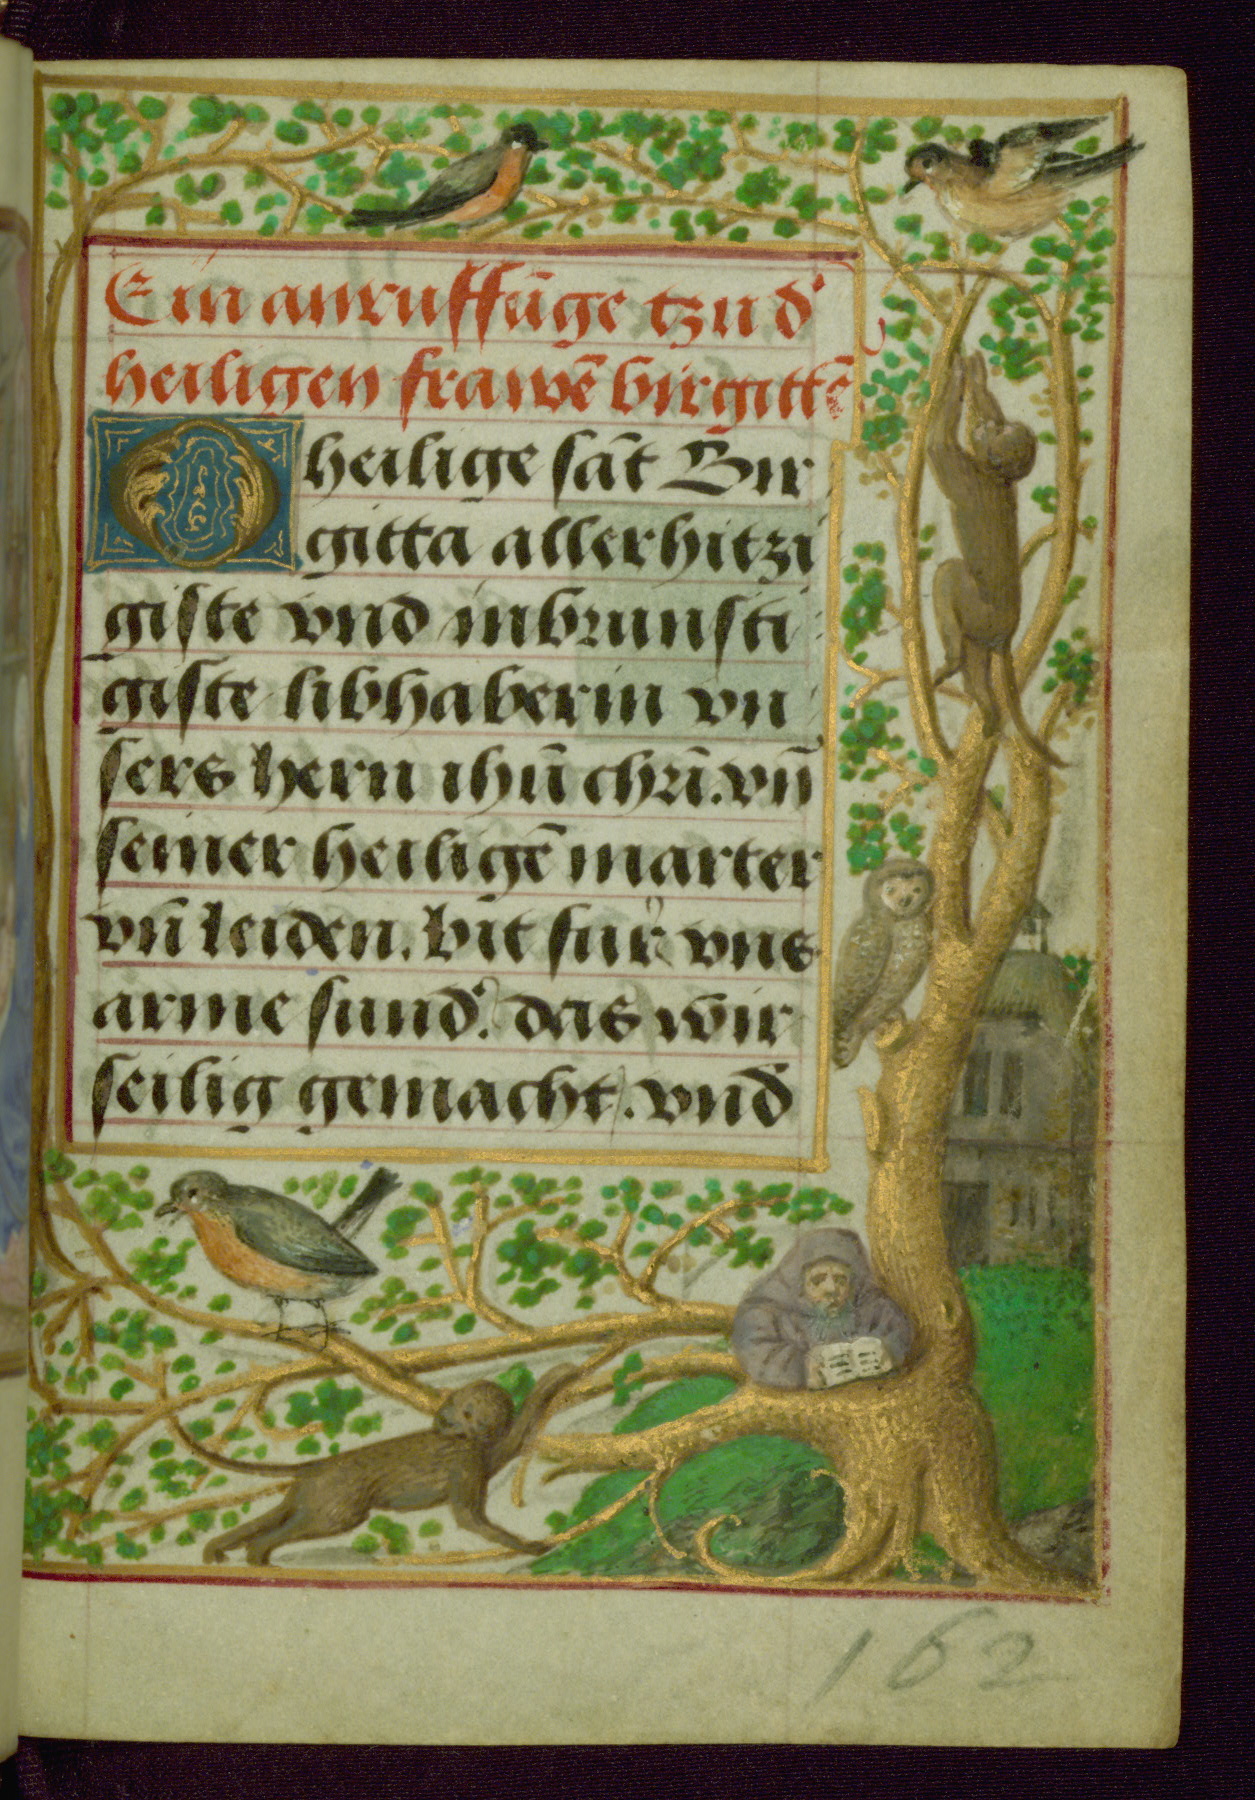 Ein anruffūge tzu d'
heiligen frawē birgittē
O heilige sāt Bir
gitta allerhitzi
giste vnd inbrunsti
giste libhaberin vn
sers hern ihū chrī. vn̄
seiner heiligē marter
vn̄ leiden. bit fur vns
arme sund'. das wir
seilig gemacht. vnd
162